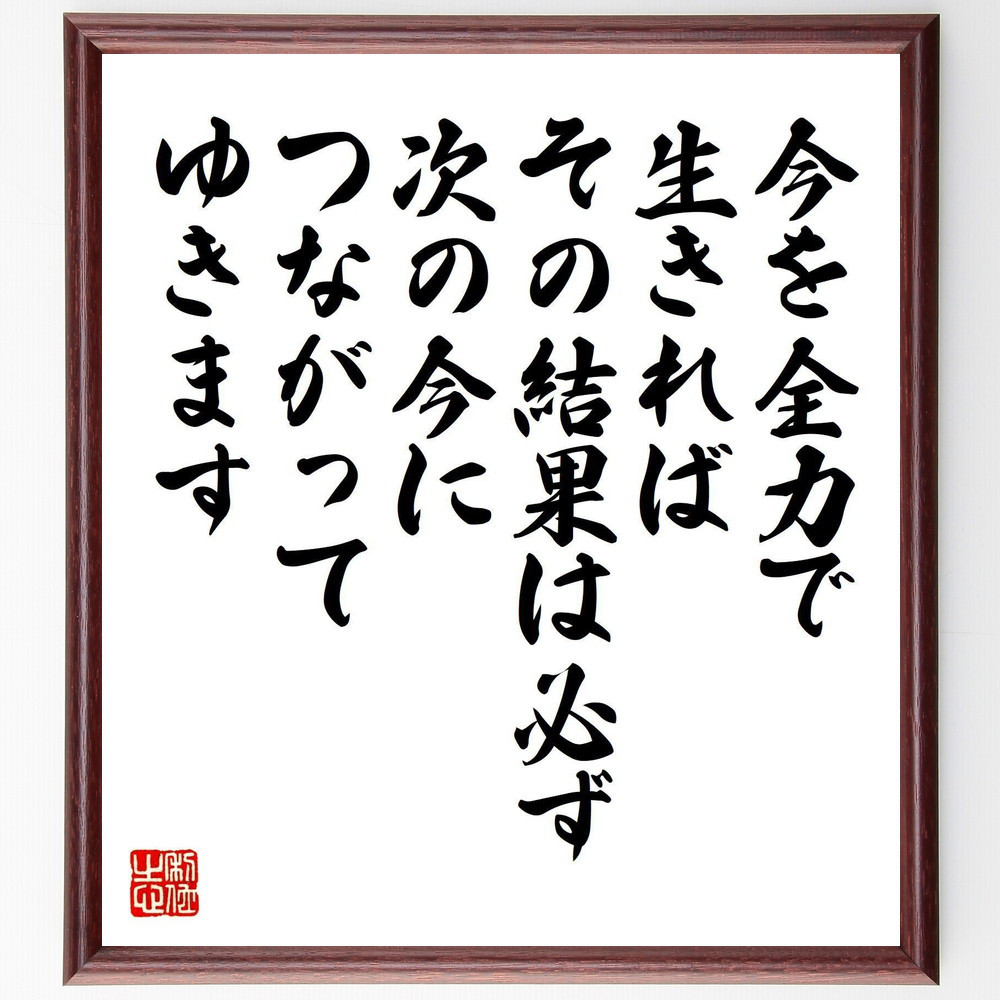 今を全力で
生きれば
その結果は必ず
次の今に
つながって
ゆきます